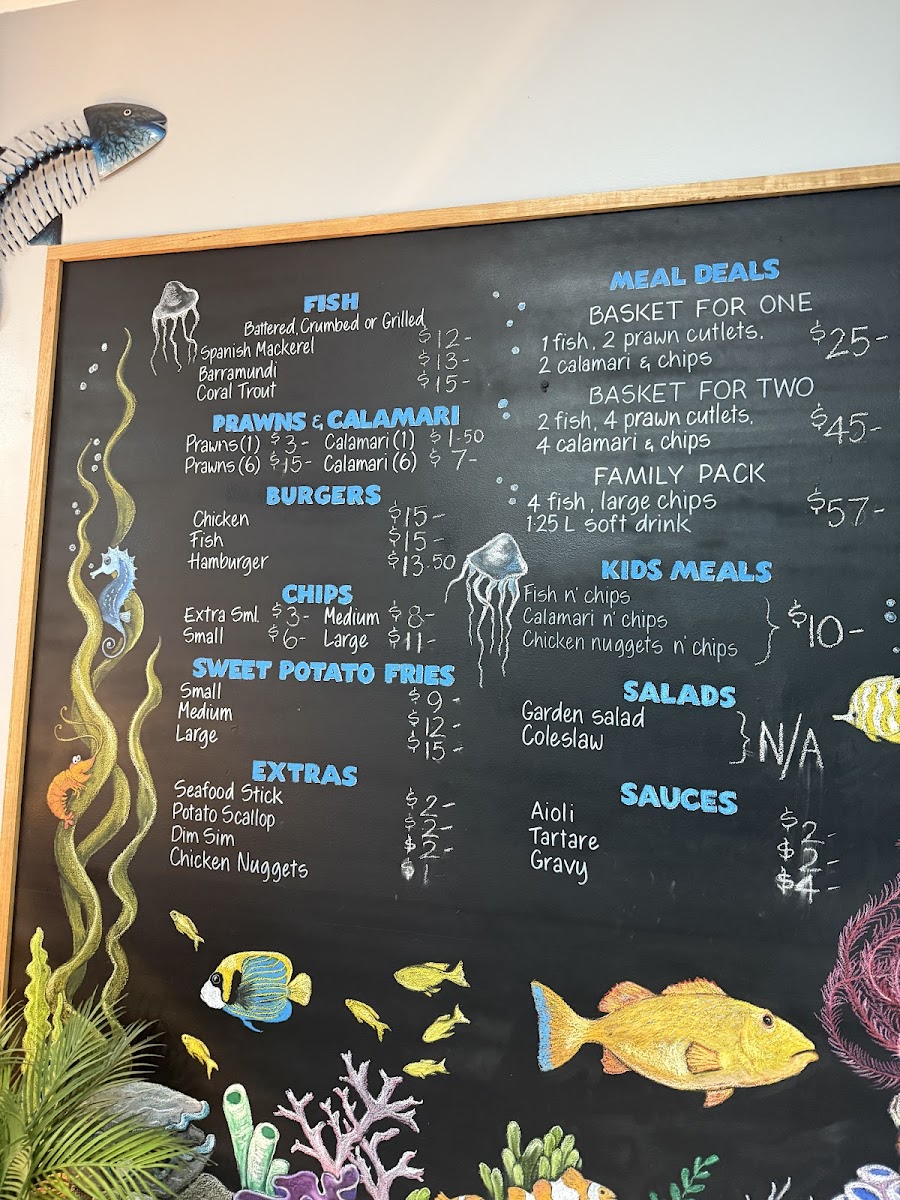 FISH
Battered, Crumbed or Grilled
Spanish Mackerel $12-
Barramundi $13-
Coral Trout $15-
PRAWNS & CALAMARI
Prawns (1) $3- Calamari (1) $1-50
Prawns (6) $15- Calamari (6) $7-
BURGERS
Chicken $15-
Fish $15-
Hamburger $13.50
CHIPS
Extra Sml. $3- Medium $8-
Small $6- Large $11-
SWEET POTATO FRIES
Small $9-
Medium $12-
Large $15-
EXTRAS
Seafood Stick $2-
Potato Scallop $2-
Dim Sim $2-
Chicken Nuggets $1-
MEAL DEALS
BASKET FOR ONE
1 fish, 2 prawn cutlets. $25-
2 calamari & chips
BASKET FOR TWO
2 fish, 4 prawn cutlets. $45-
4 calamari & chips
FAMILY PACK
4 fish, large chips $57-
1.25 L soft drink
KIDS MEALS
Fish n' chips
Calamari n' chips $10-
Chicken nuggets n' chips
SALADS
Garden salad N/A
Coleslaw
SAUCES
Aioli $2-
Tartare $2-
Gravy $4-